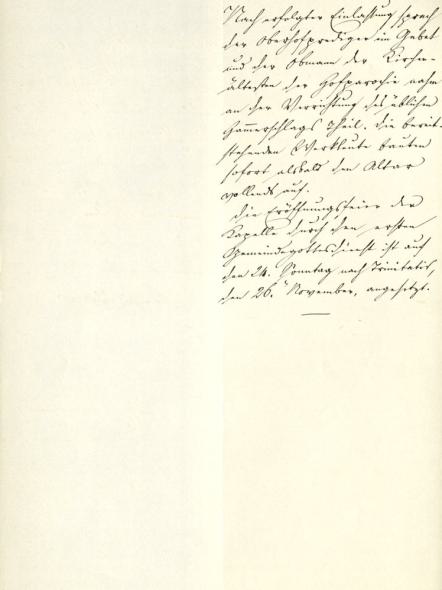 Nach erfolgter Einlassung sprach
der Oberhofprediger ein Gebet
und der Obmann der Kirchen-
ältesten der Hofparochie nahm
an der Verrichtung des üblichen
Hammerschlags Theil. Die bereit
stehenden Werkleute bauten
sofort alsbald den Altar
vollends auf.
Die Eröffnungsfeier der
Kapelle durch den ersten
Gemeindegottesdienst ist auf
den 24. Sonntag nach Trinitatis,
den 26. November, angesetzt.